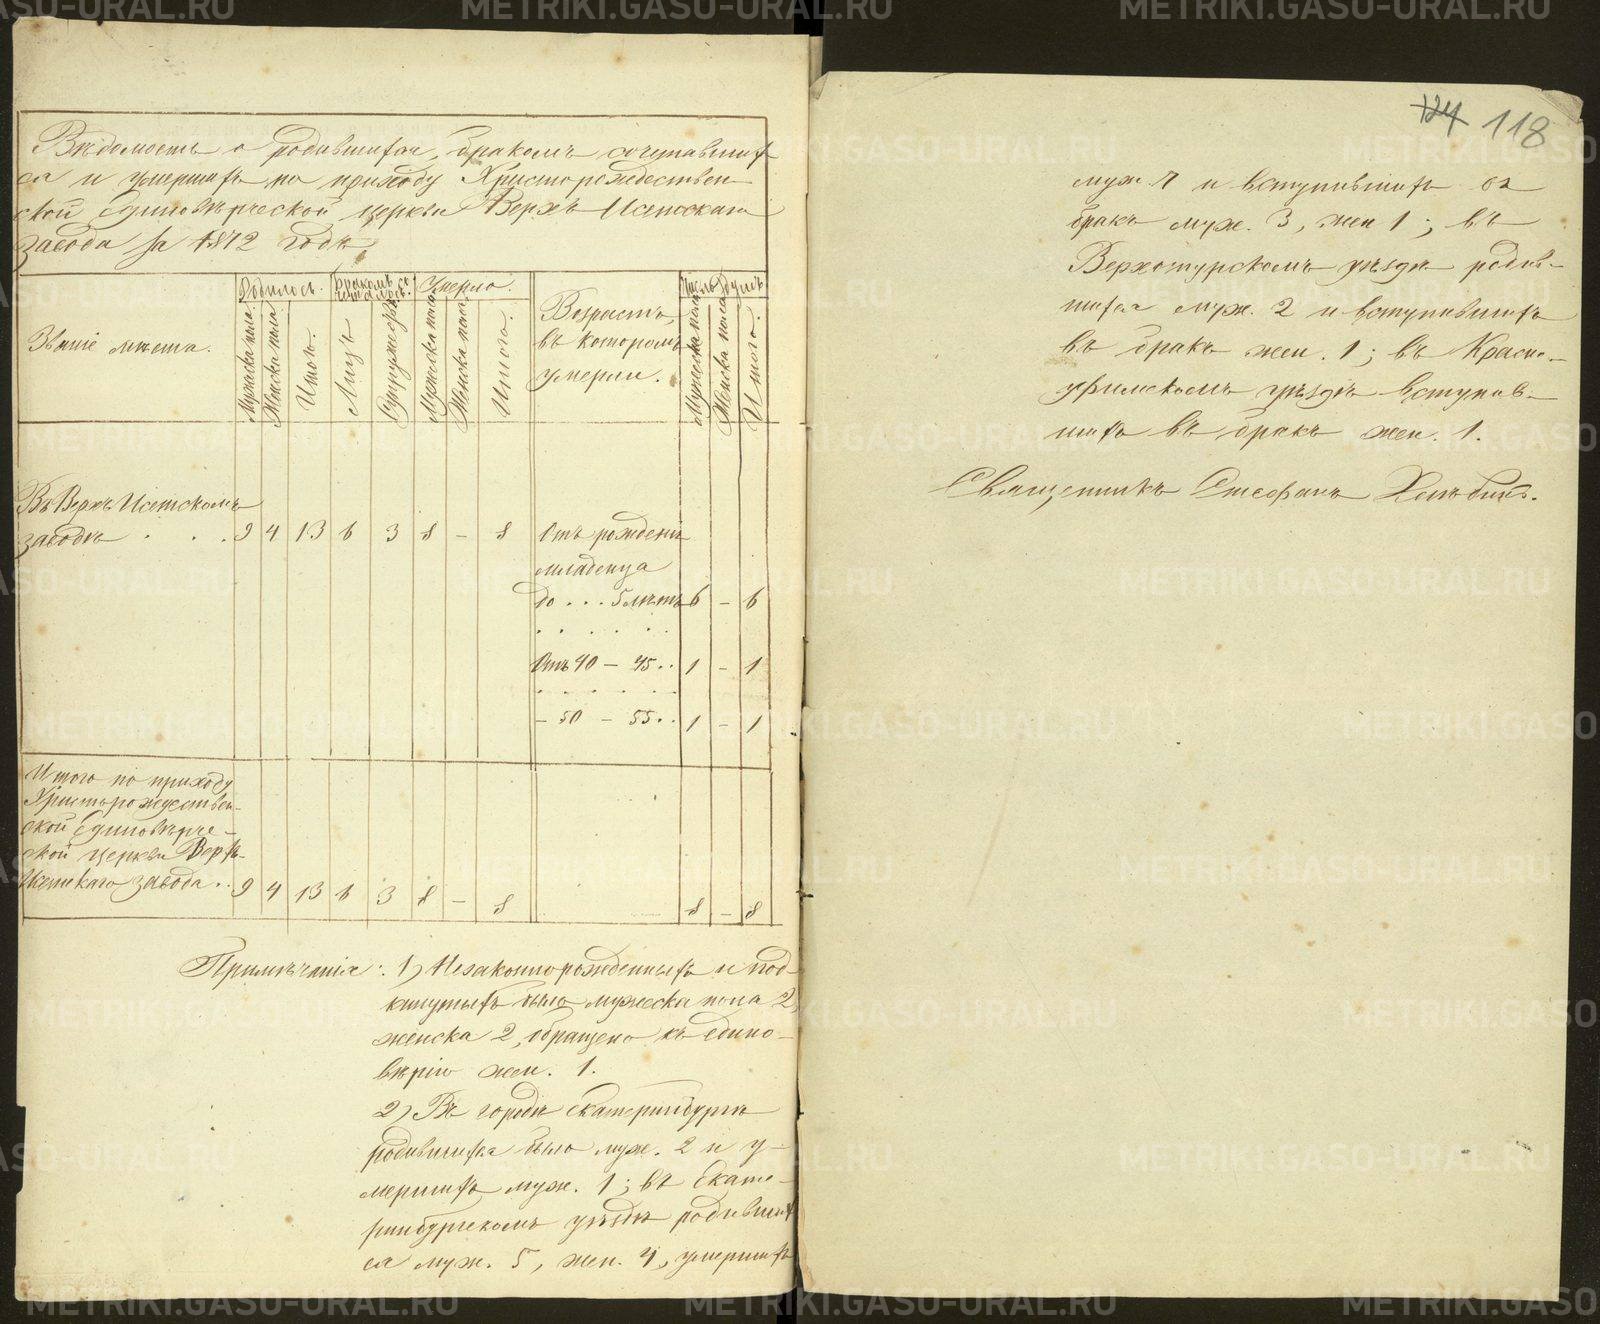 Вѣдомость о родившихся, бракомъ сочетавших
ся и умершихъ по приходу Христорождествен
ской Единовѣрческой церкви Верхъ Исетскаго
завода за 1872 годъ.
Званіе мѣста.
Родилось.
Мужеска пола.
Женска пола.
Итогъ.
Бракомъ со-
четалось.
Лицъ
Супружествъ
Умерло.
Мужеска пола
Женска пола
Итого.
Возрастъ,
въ которомъ
умерли.
Число душъ
Мужеска пола
Женска пола
Итого.
Въ Верхъ Исетскомъ
заводѣ . . . 9 4 13 6 3 8 – 8
Отъ рожденія
младенца
до . . . 5 лѣтъ 6 – 6
. . . . . .
Отъ 40 – 45 . . 1 – 1
. . . . . .
– 50 – 55 . . 1 – 1
Итого по приходу
Христорождествен-
ской Единовѣрче-
ской церкви Верхъ-
Исетскаго завода . . 9 4 13 6 3 8 – 8 8 – 8
Примѣчанія: 1) Незаконнорожденныхъ и под-
кинутыхъ было мужеска пола 2,
женска 2, обращено къ едино-
вѣрію жен. 1.
2) Въ городѣ Екатеринбургѣ
родившихся было муж. 2 и у-
мершихъ муж. 1; въ Екате-
ринбургскомъ уѣздѣ родивших
ся муж. 5, жен. 4, умершихъ
124 118
муж. 7 и вступившихъ въ
бракъ муж. 3, жен 1; въ
Верхотурскомъ уѣздѣ родив-
шихся муж. 2 и вступившихъ
въ бракъ жен. 1; въ Красно-
уфимскомъ уѣздѣ вступив-
шихъ въ бракъ жен. 1.
Священникъ Стефанъ Хлѣбинъ.
METRIKI.GASO-URAL.RU